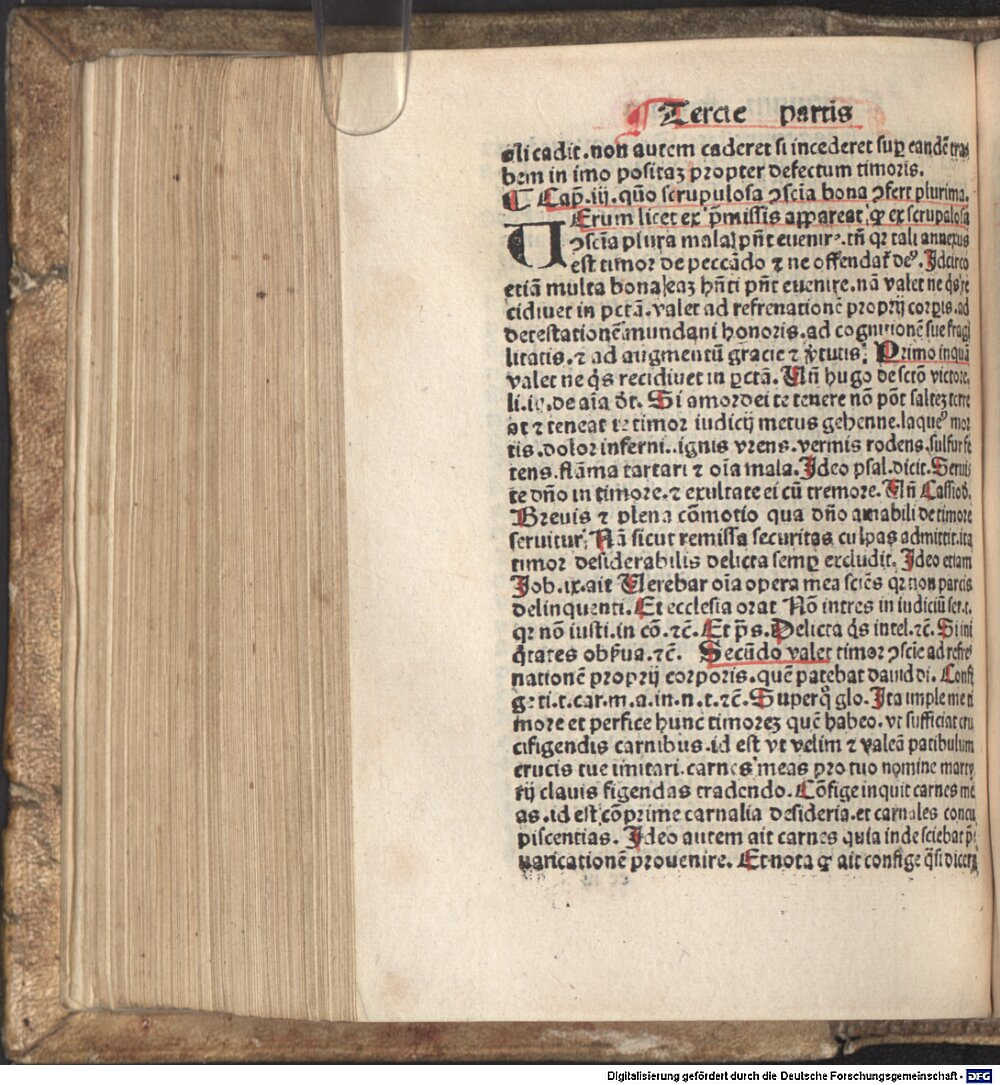 Tercie partis
oli cadit. non autem caderet si incederet suꝑ eandē tra
bem in imo positaꝫ propter defectum timoris.
¶ Cap̄. iij. quo̅ scrupulosa ꝯscīa bona ꝯfert plurima.
VErum licet ex p̄missis appareat ꝙ ex scrupulosa
ꝯscīa plura mala pn̄t euenire. tn̄ qꝛ tali annexus
est timor de peccādo ⁊ ne offendat᷑ deꝰ. Idcirco
etiā multa bona eaꝫ hn̄ti pn̄t euenire. nā valet ne q̄s re
cidiuet in pctā. valet ad refrenationē proprij corpis. ad
detestationē mundani honoris. ad cognitionē sue fragi
litatis. ⁊ ad augmentū gracie ⁊ v̄tutis. Primo inquā
valet ne q̄s recidiuet in pctā. Vn̄ hugo de sctō victore.
li. iiij. de aīa dt̄. Si amor dei te tenere nō pōt saltez terre
at ⁊ teneat te timor iudicij metus gehenne. laqueꝰ mor
tis. dolor inferni.. ignis vrens. vermis rodens. sulfur fe
tens. flāma tartari ⁊ oīa mala. Ideo psal. dicit. Serui
te dn̄o in timore. ⁊ exultate ei cū tremore. Vn̄ Cassiod.
Breuis ⁊ plena cōmotio qua dn̄o amabili de timore
seruitur. Nā sicut remissa securitas culpas admittit. ita
timor desiderabilis delicta semꝑ excludit. Ideo etiam
Job. ix. ait Verebar oīa opera mea sciēs qꝛ non parcis
delinquenti. Et ecclesia orat Nō intres in iudiciū ser. t.
qꝛ nō iusti. in cō. ⁊c̄. Et p̄s. Delicta q̄s intel. ⁊c̄. Si ini
q̄tates obs̄ua. ⁊c̄. Secūdo valet timor ꝯscīe ad refre
nationē proprij corporis. quē patebat dauid di. Confi
ge ti. t. car. m. a. in. n. t. ⁊c̄. Super q̄ glo. Ita imple me ti
more et perfice hunc timoreꝫ quē habeo. vt sufficiat cru
cifigendis carnibus. id est vt velim ⁊ valeā patibulum
crucis tue imitari. carnes meas pro tuo nomine marty
rij clauis figendas tradendo. Cōfige inquit carnes me
as. id est cōprime carnalia desideria. et carnales concu
piscentias. Ideo autem ait carnes quia inde sciebat p̄
uaricationē prouenire. Et nota ꝙ ait confige q̄si diceret
Digitalisierung gefördert durch die Deutsche Forschungsgemeinschaft - DFG